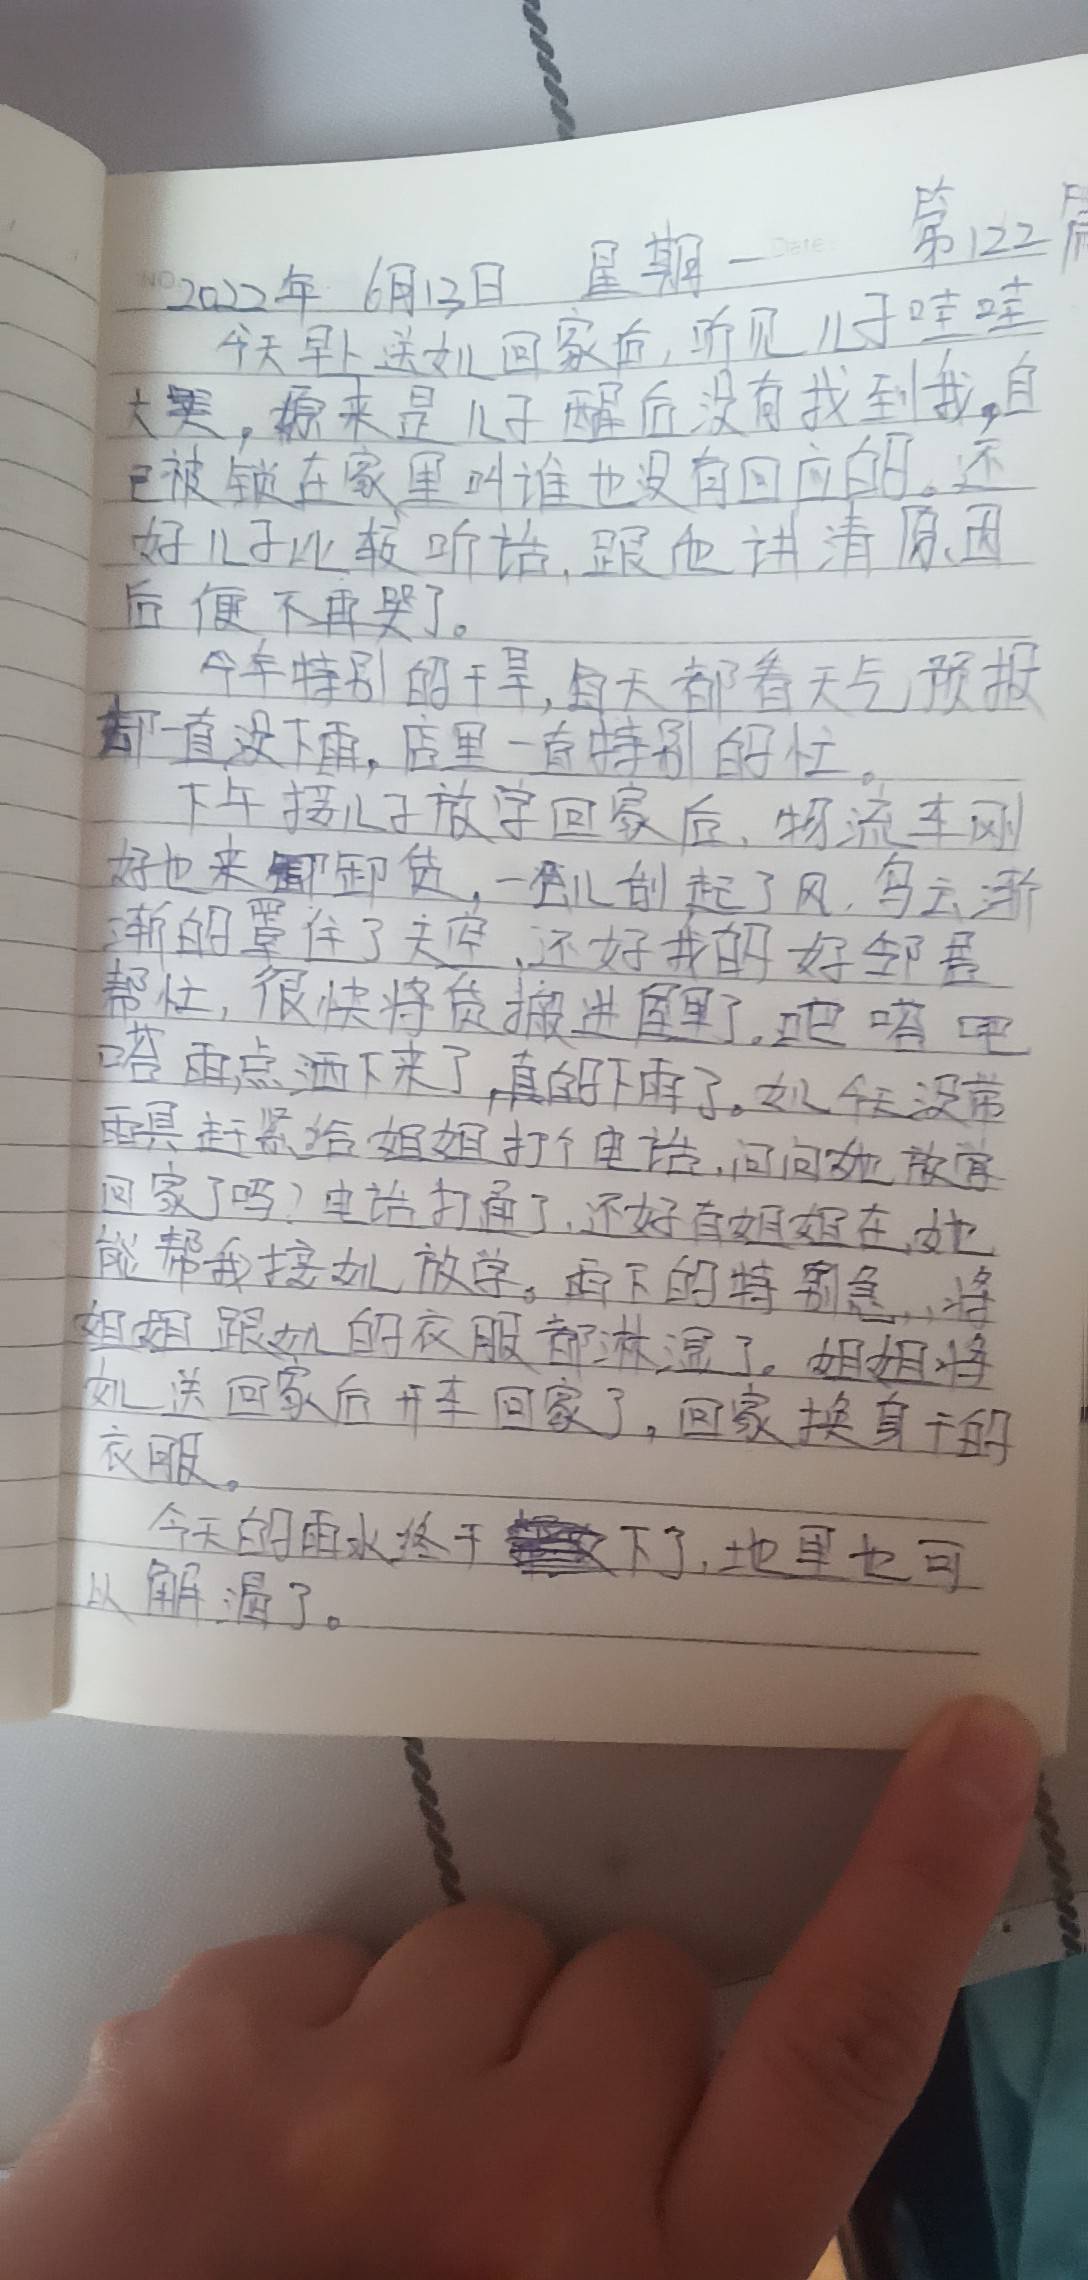 2022年 6月13日 星期一 第122篇
今天早上送女儿回家后,听见儿子哇哇
大哭,原来是儿子醒后没有找到我,自
己被锁在家里叫谁也没有回应的。还
好儿子比较听话,跟他讲清原因
后便不再哭了。
今年特别的干旱,每天都看天气预报
都一直没下雨,店里一直特别的忙。
下午接儿子放学回家后,物流车刚
好也来卸货,一会儿刮起了风,乌云渐
渐的罩住了天空,还好我的好邻居
帮忙,很快将货搬进屋里了,吧嗒吧
嗒雨点洒下来了,真的下雨了。女儿今天没带
雨具赶紧给姐姐打个电话,问问她放学
回家了吗?电话打通了,还好有姐姐在,她
能帮我接女儿放学。雨下的特别急,,将
姐姐跟女儿的衣服都淋湿了。姐姐将
女儿送回家后开车回家了,回家换身干的
衣服。
今天的雨水终于下了,地里也可
以解渴了。